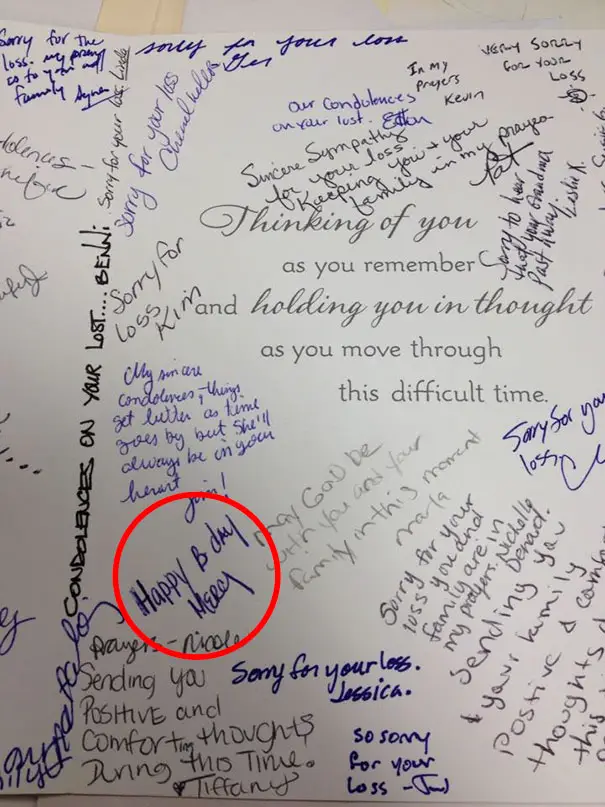 Sorry for the
loss. my prayers
go to you and
family Agnes
sorry for your loss
Sorry for your loss. Linda
Sorry for your loss
In my
prayers
Kevin
VERY SORRY
FOR YOUR
LOSS
our condolences
on your lost.
Sincere Sympathy
for your loss
Keeping you + your
family in my prayers
Pat
Sorry to hear
that your Grandma
Past Away.
Leslie K.
Thinking of you
as you remember
and holding you in thought
as you move through
this difficult time.
CONDOLENCES ON YOUR LOST.... BENNI
Sorry for
loss
Kim
My sincere
condolences, things
get better as time
goes by but she'll
always be in your
heart
Sorry for your
loss
may God be
with you and your
family in this moment
Marla
Happy B day
MERCY
Sorry for your
loss you and
family are in
my prayers. Nichelle
prayers - Nicole
Sending you
POSITIVE and
COMFORTing thoughts
During this Time.
Tiffany
Sorry for your loss.
Jessica.
so sorry
for your
loss
Sending you
& your family
Postive &
thoughts
this